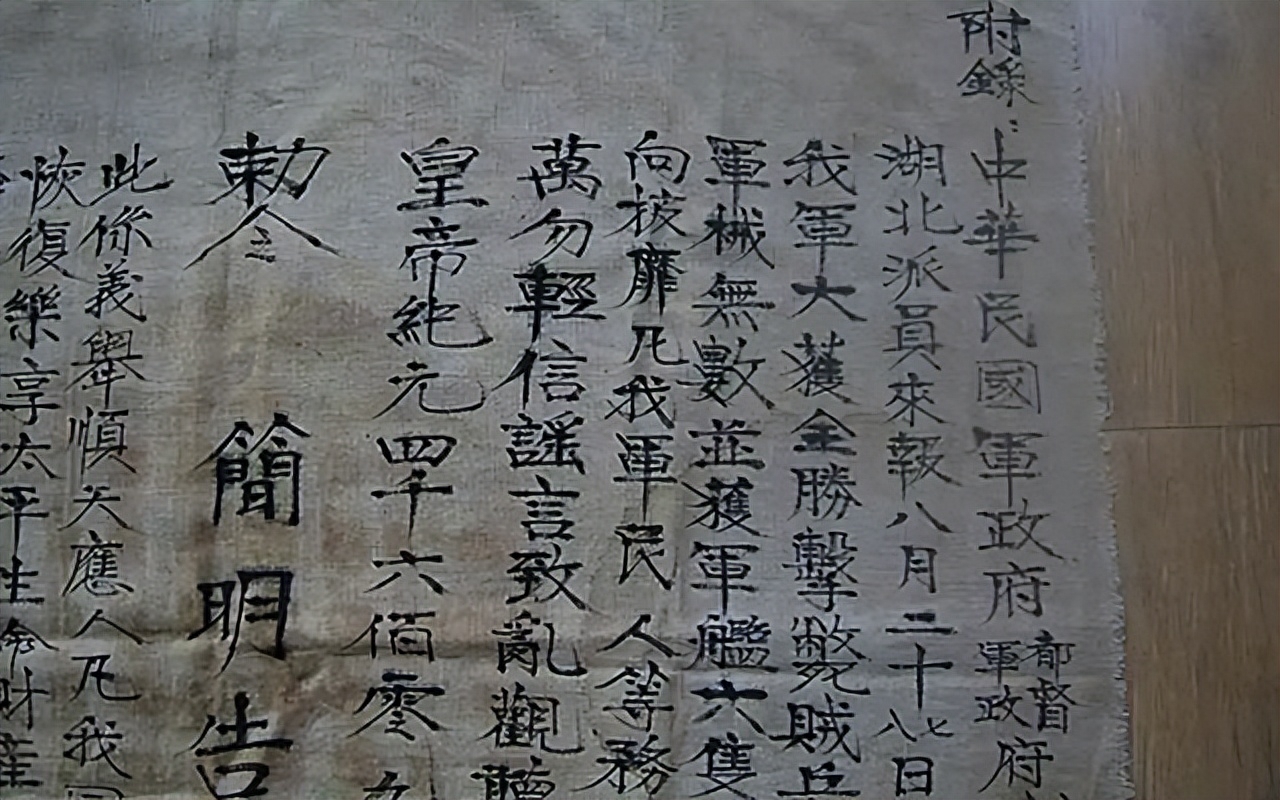 附錄：中華民國軍政府都督軍政府
湖北派員來報八月二十七八日
我軍大獲全勝擊斃賊兵
軍械無數並獲軍艦六隻
向披靡凡我軍民人等務
萬勿輕信謠言致亂觀聽
皇帝紀元四千六佰零九
勅令 簡明告
此係義舉順天應人凡我
恢復樂享太平生命財產